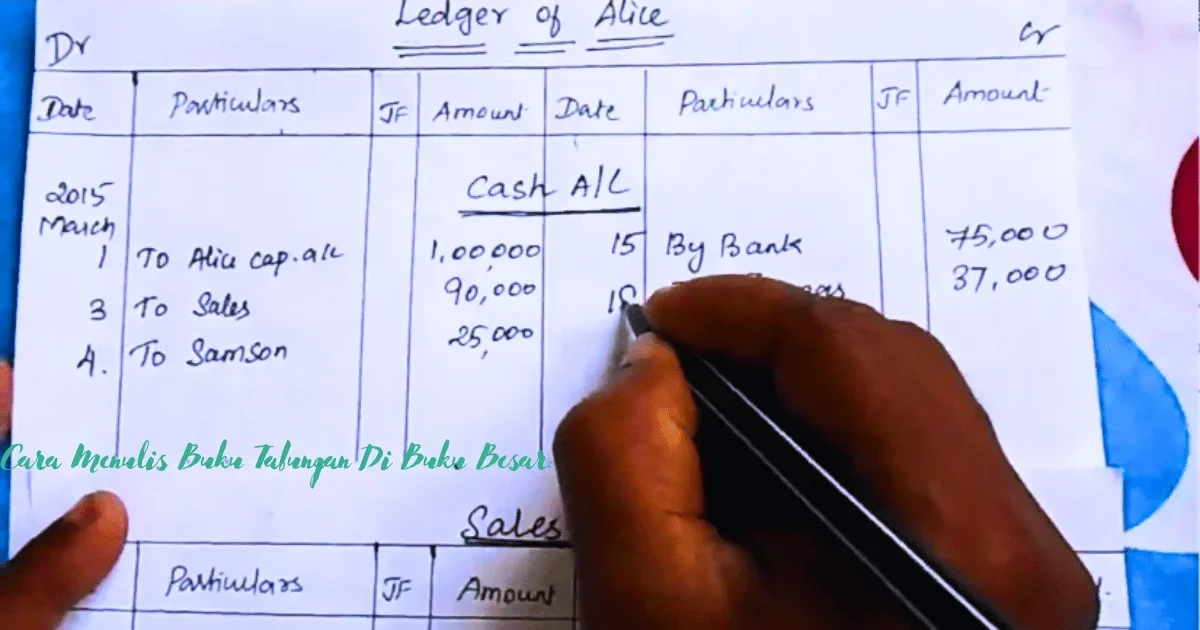 Ledger of Alice
Dr Cr
Date Particulars JF Amount Date Particulars JF Amount
Cash A/C
2015
March
1 To Alice cap. a/c 1,00,000 15 By Bank 75,000
3 To Sales 90,000 37,000
4. To Samson 25,000
Cara Menulis Buku Talungan Di Buku Besar
Sales
Particulars JF Amount